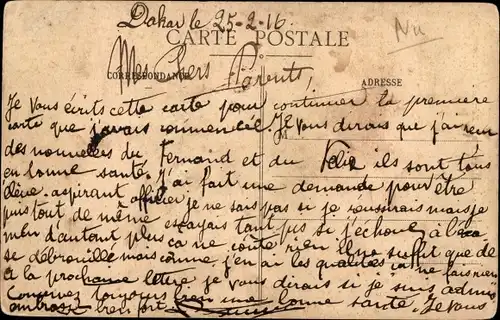 Dakar le 25-2-16
Nu
CARTE POSTALE
Mes Chers Parents,
CORRESPONDANCE
ADRESSE
Je vous écrits cette carte pour continuer la première
carte que j'avais commencée. Je vous dirais que j'ai reçu
des nouvelles du Fernand et du Felix ils sont tous
en bonne santé. J'ai fait une demande pour être
élève-aspirant officier je ne sais pas si je réussirais mais je
puis tout de même essayais tant pis si j'échoue à
d'autant plus ça ne coute rien il ne suffit que de
se débrouiller mais comme j'en ai les qualités ça ne fais rien
à la prochaine lettre je vous dirais si je suis admis
Conservez toujours bien une bonne santé "Je vous"
embrasse bien fort